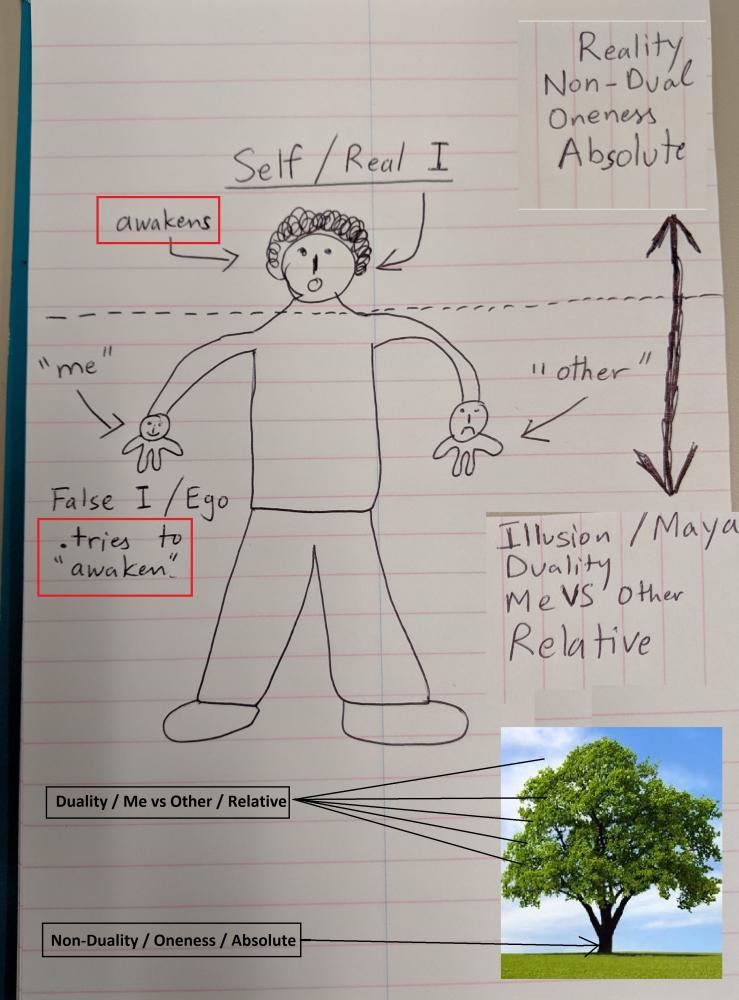 Reality
Non-Dual
Oneness
Absolute
Self / Real I
awakens
"me"
"other"
False I / Ego
. tries to
"awaken"
Illusion / Maya
Duality
Me VS Other
Relative
Duality / Me vs Other / Relative
Non-Duality / Oneness / Absolute